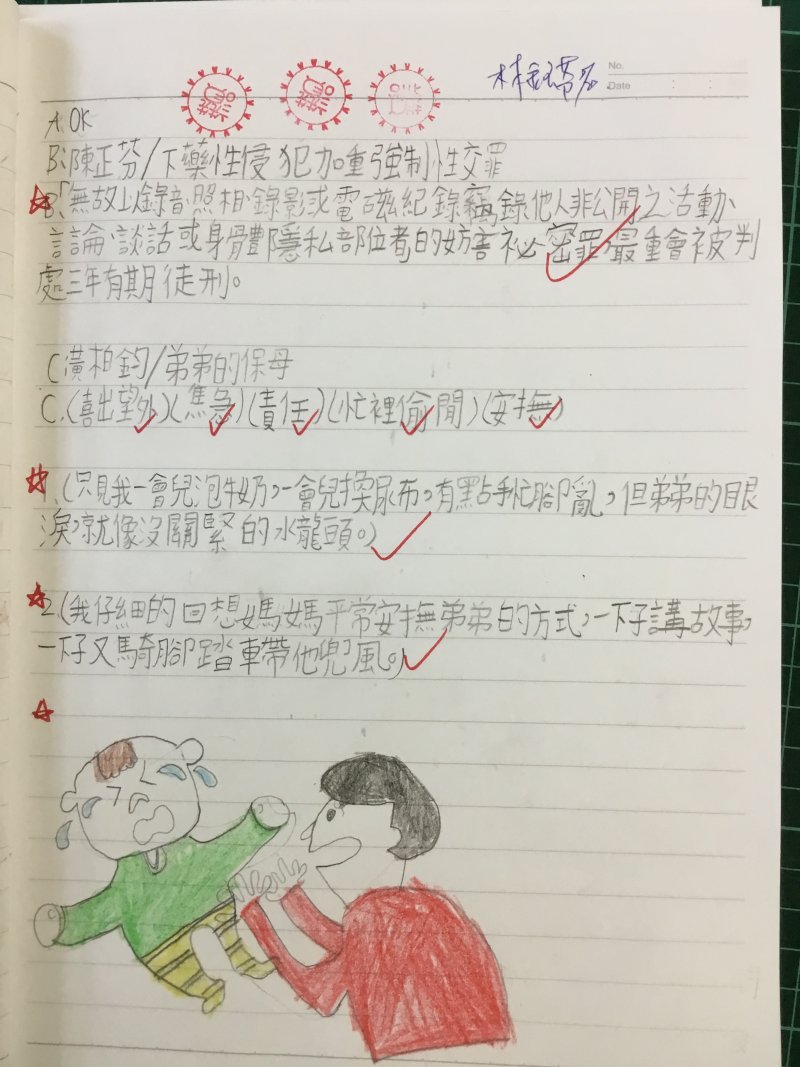 No.
Date
A. OK
B:陳正芬/下藥性侵犯加重強制性交罪
B.「無故以錄音、照相、錄影或電磁紀錄竊錄他人非公開之活動、
言論、談話或身體隱私部位者」的妨害祕密罪,最重會被判
處三年有期徒刑。
C黃柏鈞/弟弟的保母
C.(喜出望外)(焦急)(責任)(忙裡偷閒)(安撫)
1.(只見我一會兒泡牛奶,一會兒換尿布,有點手忙腳亂,但弟弟的眼
淚,就像沒關緊的水龍頭。)
2.(我仔細的回想媽媽平常安撫弟弟的方式,一下子講故事,
一下子又騎腳踏車帶他兜風。)